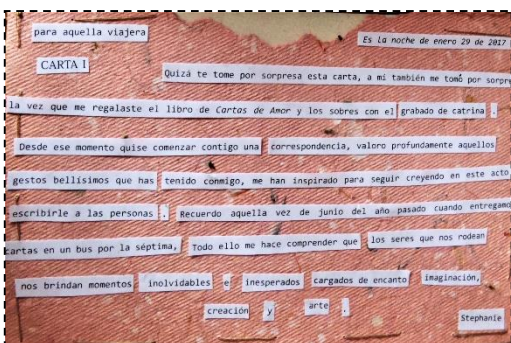 para aquella viajera
Es La noche de enero 29 de 2017
CARTA I
Quizá te tome por sorpresa esta carta, a mi también me tomó por
la vez que me regalaste el libro de Cartas de Amor y los sobres con el grabado de catrina .
Desde ese momento quise comenzar contigo una correspondencia, valoro profundamente aquellos
gestos bellísimos que has tenido conmigo, me han inspirado para seguir creyendo en este acto
escribirle a las personas . Recuerdo aquella vez de junio del año pasado cuando
cartas en un bus por la séptima, Todo ello me hace comprender que los seres que nos rodean
nos brindan momentos inolvidables e inesperados cargados de encanto imaginación,
creación y arte .
Stephanie